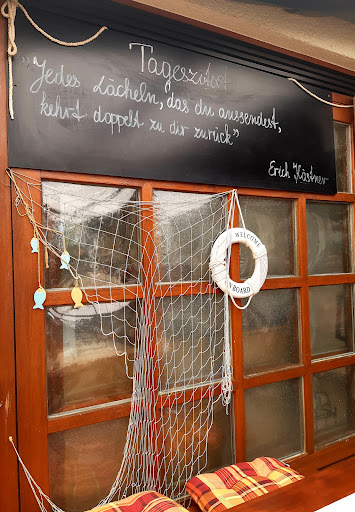 Tageszitat
"Jedes Lächeln, das du aussendest,
kehrt doppelt zu dir zurück"
Erich Kästner
WELCOME